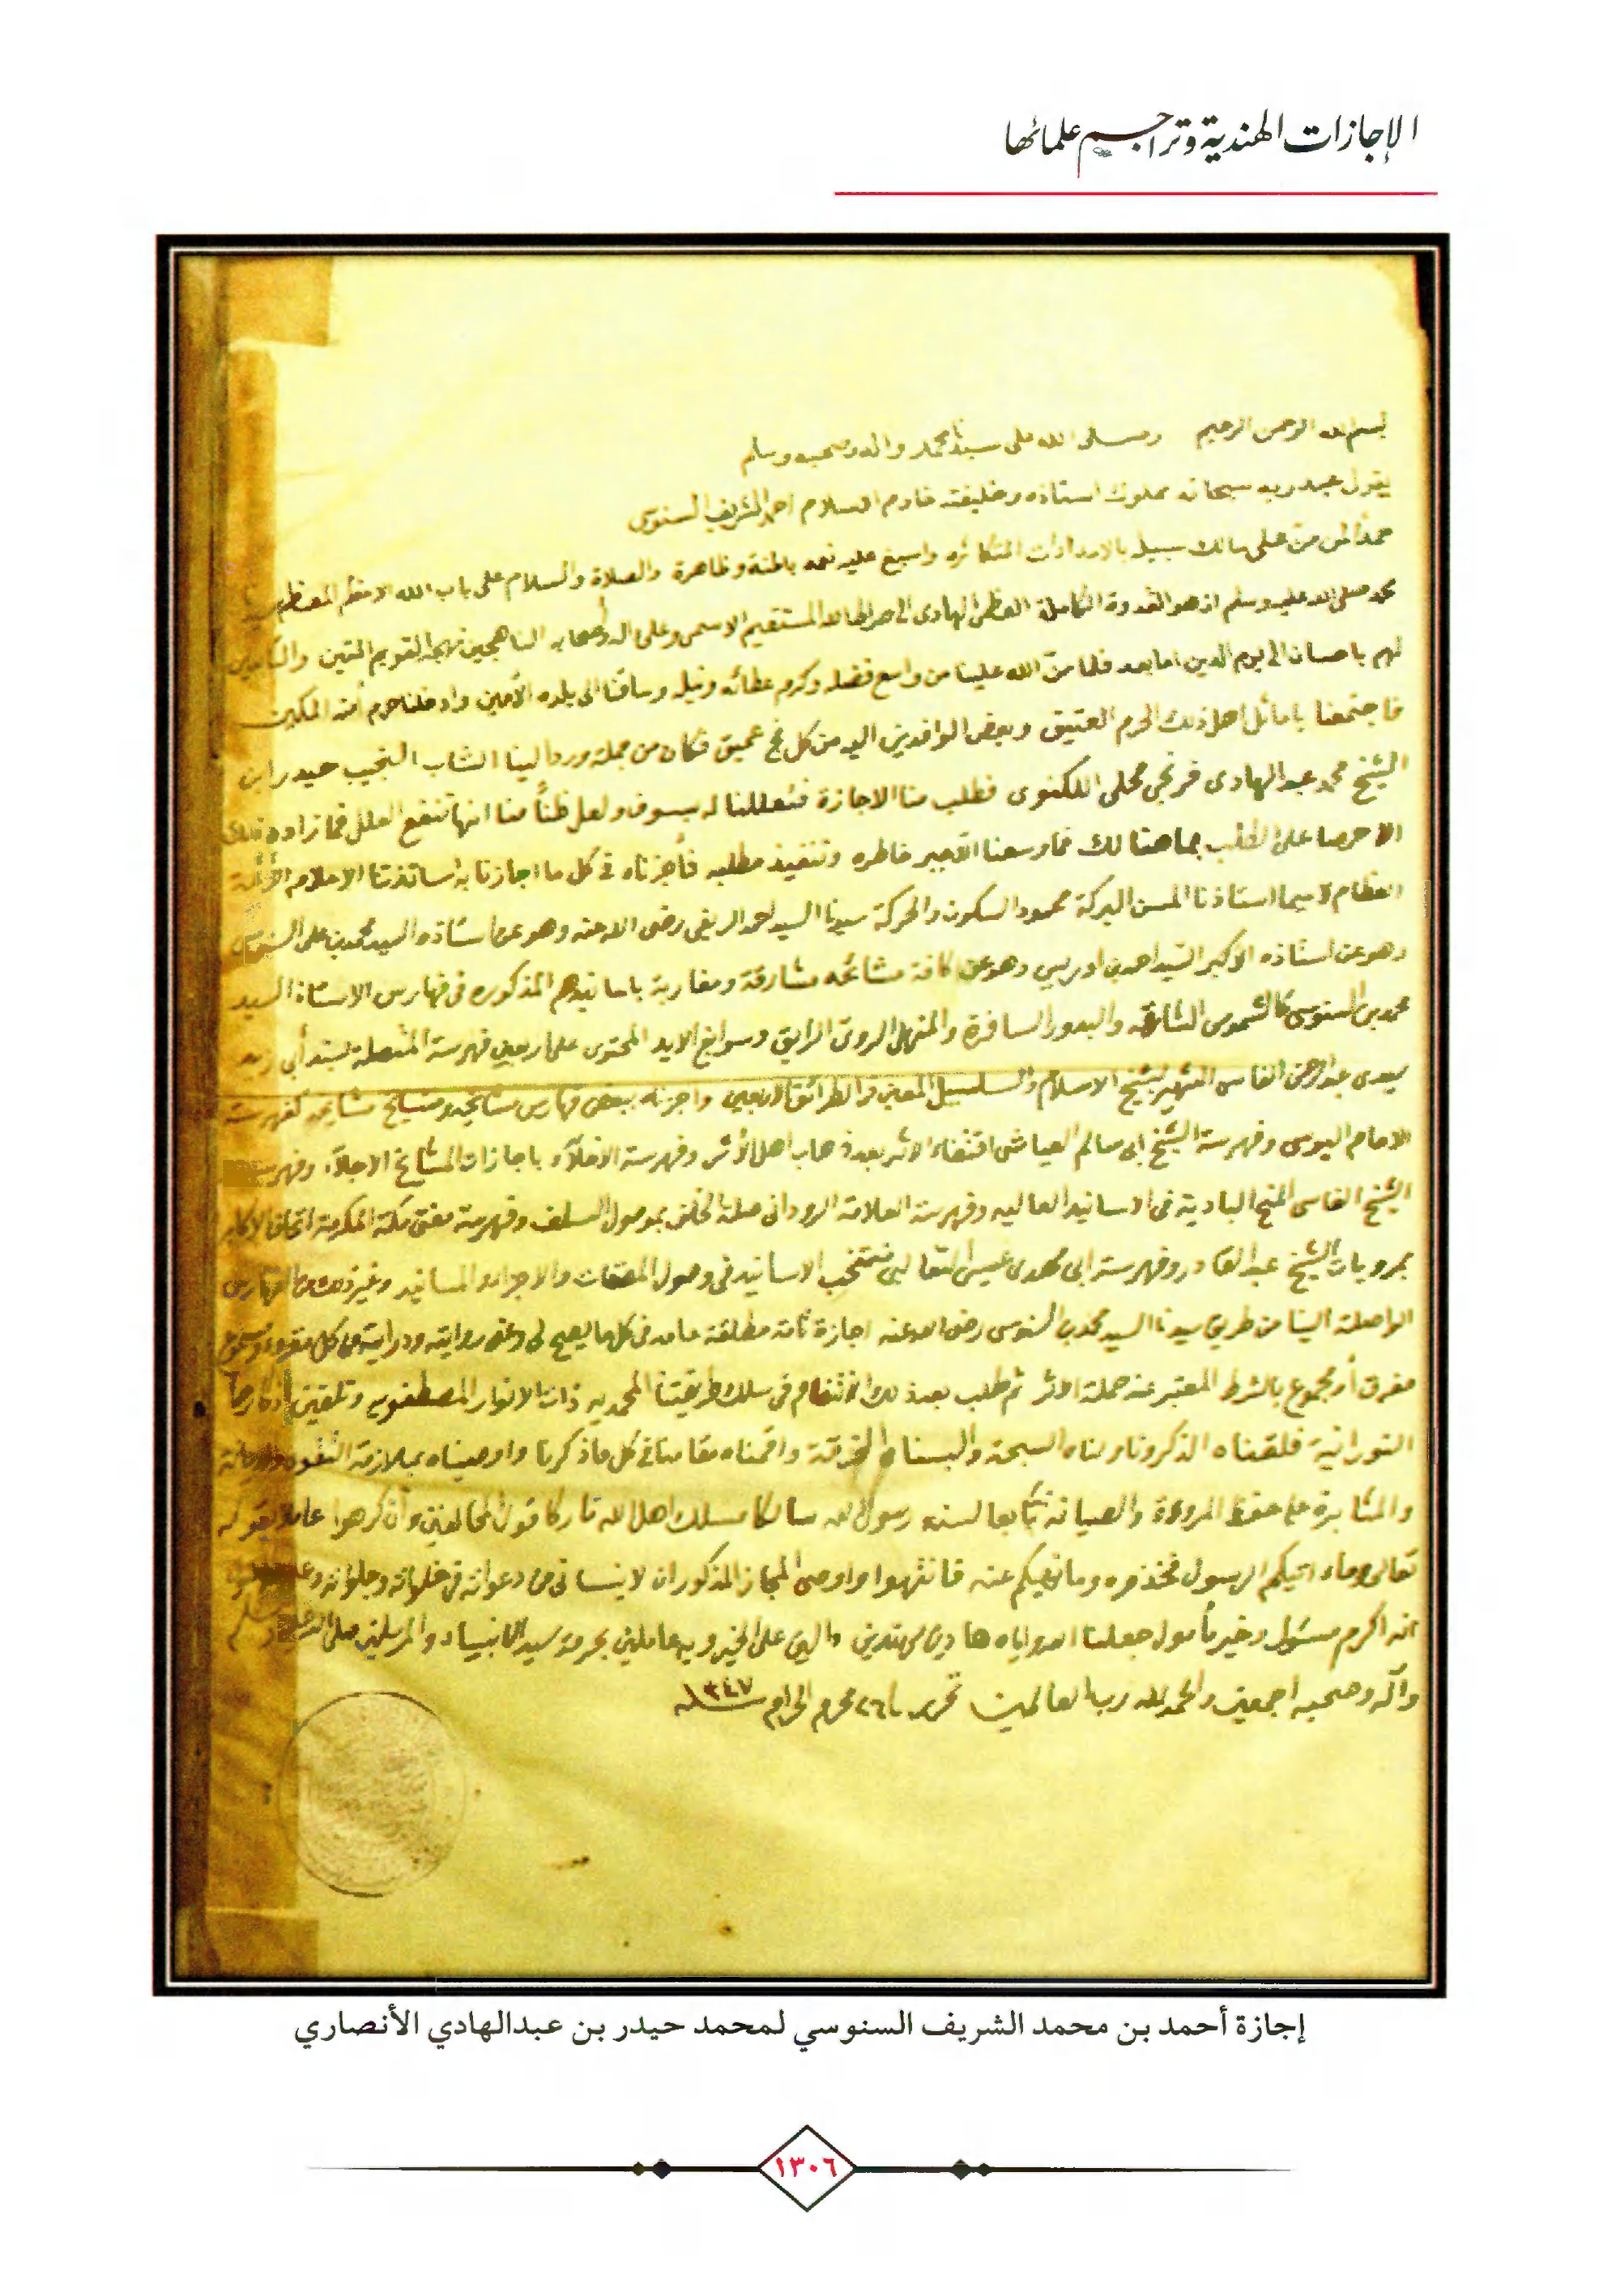 الإجازات الهندية وتراجم علمائها
بسم الله الرحمن الرحيم وصلى الله على سيدنا محمد واله وصحبه وسلم
يقول عبد ربه سبحانه مملوك استاذه وخليفته خادم الاسلام احمد الشريف السنوسي
حمدا لمن منّ على سالك سبيل بالامدادات المتكاثره واسبغ عليه نعمه باطنة وظاهرة والصلاة والسلام على باب الله الاعظم المعظم
محمد صلى الله عليه وسلم اذ هو القدوة الكاملة العظمى الهادى الى صراط الله المستقيم الاسمى وعلى اله وأصحابه الناهجين نهجه القويم المتين والتابعين
لهم باحسان الى يوم الدين اما بعد فلما منّ الله علينا من واسع فضله وكرم عطائه ونيله وساقنا الى بلده الأمين وادخلنا حرم أمنه المكين
فاجتمعنا باماثل اهل ذلك الحرم العتيق وبعض الوافدين اليه من كل فج عميق فكان من جملة من ورد الينا الشاب النجيب حيدر ابن
الشيخ محمد عبد الهادى فرنجى محلى اللكنوى فطلب منا الاجازة فتعللنا له بسوف ولعل ظنًّا منا انها تنفع العلل فما زاده ذلك
الا حرصا على الطلب بما هنالك فما وسعنا الا جبر خاطره وتنفيذ مطلبه فأجزناه فى كل ما اجازنا به اساتذتنا الاعلام الأجلة
العظام لا سيما استاذنا المسن البركة محمود السكون والحركة سيدنا السيد احمد الريفى رضى الله عنه وهو عن استاذه السيد محمد بن على السنوسى
وهو عن استاذه الأكبر السيد احمد بن ادريس وهو عن كافة مشائخه مشارقة ومغاربة باسانيدهم المذكوره فى فهارس الاستاذ السيد
محمد بن السنوسى كالشموس الشارقه والبدور السافرة والمنهل الروى الرايق وسوابغ الايد المحتوى على اربعين فهرسة المتصلة بسند أبى زيد
سيدى عبد الرحمن الفاسى الشهير بشيخ الاسلام والسلسبيل المعين فى الطرائق الاربعين واجزناه ببعض فهارس مشائخه ومشايخ مشايخه كفهرسة
الامام اليوسى وفهرسة الشيخ ابى سالم العياشى اقتفاء الاثر بعد ذهاب اهل الأثر وفهرسة الاخلاء باجازات المشائخ الاجلاء وفهرسة
الشيخ الفاسى المنح البادية فى الاسانيد العاليه وفهرسة العلامة الرودانى صلة الخلف بموصول السلف وفهرسة مفتى مكة المكرمة اتحاف الاكابر
بمرويات الشيخ عبد القادر وفهرسة ابى مهدى عيسى الثعالبى منتخب الاسانيد فى وصول المصنفات والاجزاء والمسانيد وغير ذلك من الفهارس
الواصلة الينا من طريق سيدنا السيد محمد بن السنوسى رضى الله عنه اجازة تامة مطلقة عامه فى كل ما يصح لى وعنى روايته ودرايته من كل مقروء ومسموع
مفرق أو مجموع بالشرط المعتبر عند حملة الاثر ثم طلب بعد ذلك الانتظام فى سلك طريقتنا المحمديه ذات الانوار المصطفويه وتلقين اذكارها
النورانية فلقناه الذكر وناولناه السبحة والبسناه الخرقة واقمناه مقامنا فى كل ما ذكرنا واوصيناه بملازمة التقوى والديانة
والمثابرة على حفظ المروءة والصيانة تابعا لسنة رسول الله سالكا مسلك اهل الله تاركا قول المخالفين وأن كرهوا عاملا بقوله
تعالى وما اتيكم الرسول فخذوه وما نهيكم عنه فانتهوا واوصى المجاز المذكور ان لا ينسانى من دعواته فى خلواته وجلواته
انه اكرم مسئول وخير مأمول جعلنا الله واياه هادين مهتدين دالين على الخير وبه عاملين بحرمة سيد الانبياء والمرسلين صلى الله عليه وسلم
وآله وصحبه اجمعين والحمد لله رب العالمين تحرير ٢٦ محرم الحرام سنة ١٣٤٧
إجازة أحمد بن محمد الشريف السنوسي لمحمد حيدر بن عبدالهادي الأنصاري
١٣٠٦